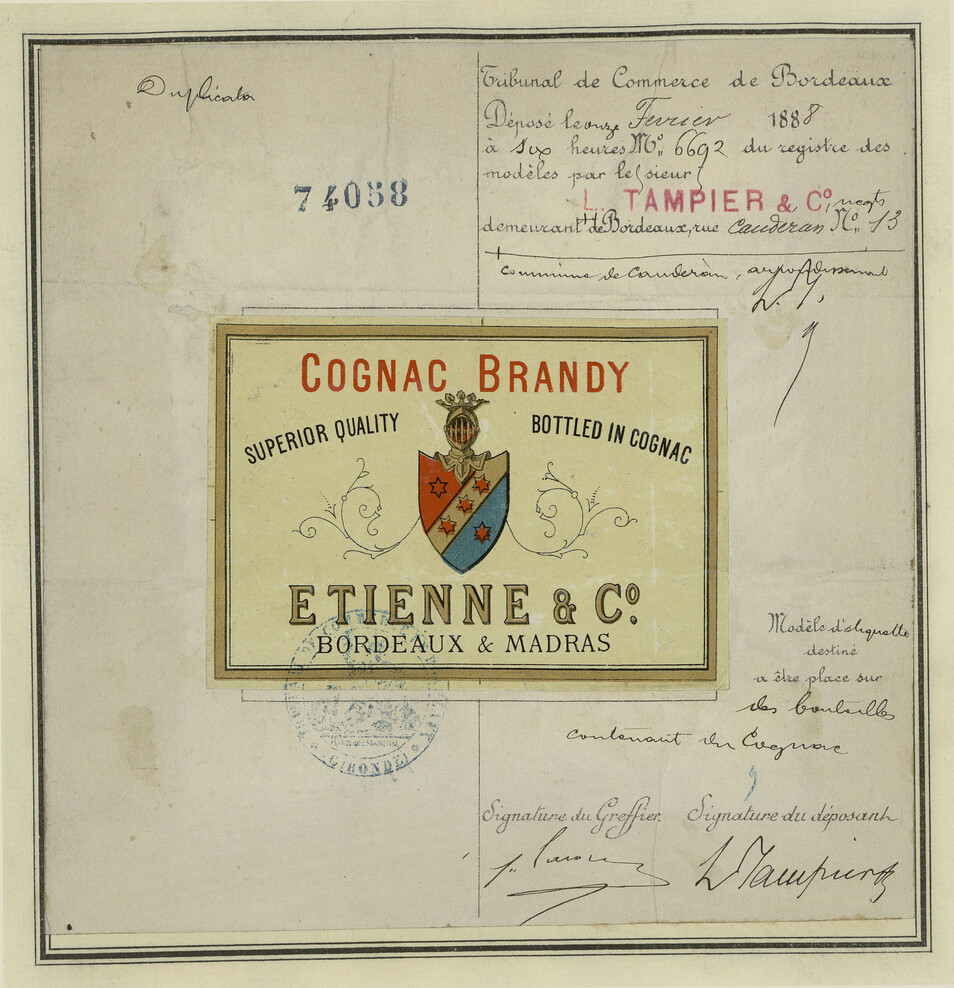 Duplicata
74058
Tribunal de Commerce de Bordeaux
Déposé le onze Fevrier 1888
à six heures No. 6692 du registre des
modèles par le sieur
L. TAMPIER & Co, negts
demeurant à Bordeaux, rue Cauderan No. 13
commune de Cauderan, arrondissement
COGNAC BRANDY
SUPERIOR QUALITY
BOTTLED IN COGNAC
ETIENNE & Co.
BORDEAUX & MADRAS
GIRONDE
Modèle d'etiquette
destiné
a être place sur
des bouteilles
contenant du Cognac
Signature du Greffier. Signature du déposant
L Tampier